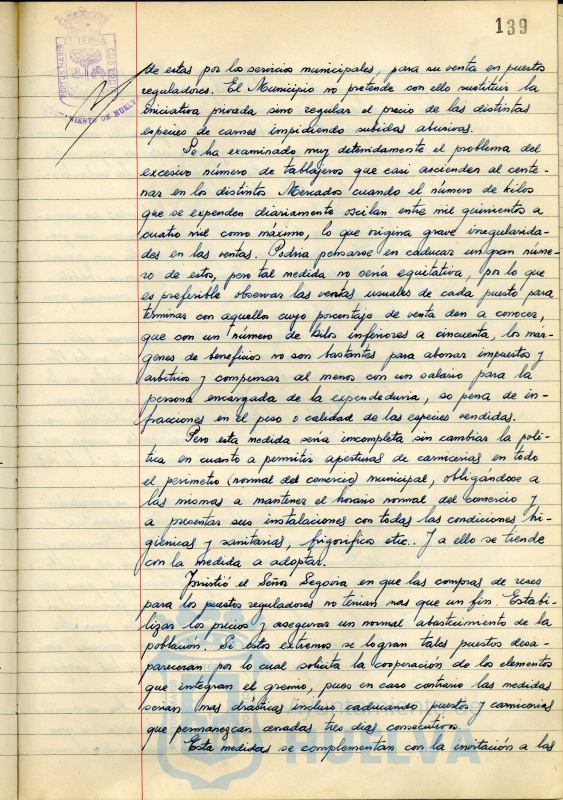 139
de estas por los servicios municipales, para su venta en puestos
reguladores. El Municipio no pretende con ello sustituir la
iniciativa privada sino regular el precio de las distintas
especies de carnes impidiendo subidas abusivas.
Se ha examinado muy detenidamente el problema del
excesivo número de tablajeros que casi ascienden al cente-
nar en los distintos Mercados cuando el número de kilos
que se expenden diariamente oscilan entre mil quinientos a
cuatro mil como máximo, lo que origina grave irregularida-
des en las ventas. Podria pensarse en caducar un gran núme-
ro de estos, pero tal medida no seria equitativa, por lo que
es preferible observar las ventas usuales de cada puesto para
terminar con aquellos cuyo porcentaje de venta den a conocer,
que con un número de kilos inferiores a cincuenta, los már-
genes de beneficios no son bastantes para abonar impuestos y
arbitrios y compensar al menos con un salario para la
persona encargada de la expendeduria, so pena de in-
fracciones en el peso o calidad de las especies vendidas.
Pero esta medida seria incompleta sin cambiar la poli-
tica en cuanto a permitir aperturas de carnicerias en todo
el perimetro (normal del comercio) municipal, obligándose a
las mismas a mantener el horario normal del comercio y
a presentar sus instalaciones con todas las condiciones hi-
giénicas y sanitarias, frigorificos etc.. Y a ello se tiende
con la medida a adoptar.
Insistió el Señor Segovia en que las compras de reses
para los puestos reguladores no tenian mas que un fin. Estabi-
lizar los precios y asegurar un normal abastecimiento de la
población. Si estos extremos se logran tales puestos desa-
pareceran por lo cual solicita la cooperación de los elementos
que integran el gremio, pues en caso contrario las medidas
serian mas drásticas incluso caducando puestos y carnicerias
que permanezcan cerradas tres dias consecutivos.
Esta medidas se complementan con la invitación a las
HUELVA